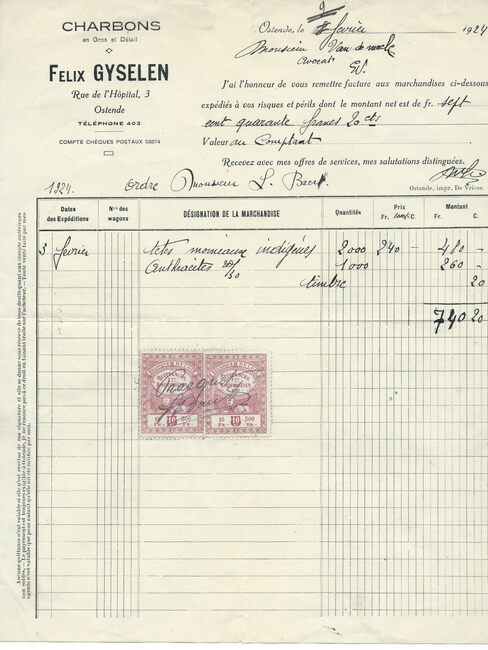 CHARBONS
en Gros et Détail
FELIX GYSELEN
Rue de l'Hôpital, 3
Ostende
TÉLÉPHONE 403
COMPTE CHÈQUES POSTAUX 58874
Ostende, le 9 février 1924
Monsieur Van de
Avocat
J'ai l'honneur de vous remettre facture aux marchandises ci-dessous
expédiés à vos risques et périls dont le montant net est de fr. sept
cent quarante francs 20 cts
Valeur au Comptant
Recevez avec mes offres de services, mes salutations distinguées.
Ostende, impr. De Vriese.
1924. Ordre Monsieur L. Baert.
Dates des Expéditions Nos des wagons DÉSIGNATION DE LA MARCHANDISE Quantités Prix Fr. C. Montant Fr. C.
3 février têtes moineaux indigènes 2000 240 - 480 -
Anthracites 20/30 1000 260 -
timbre 20
740 20
10 Fr. 500 Fr. 10 Fr. 500 Fr.